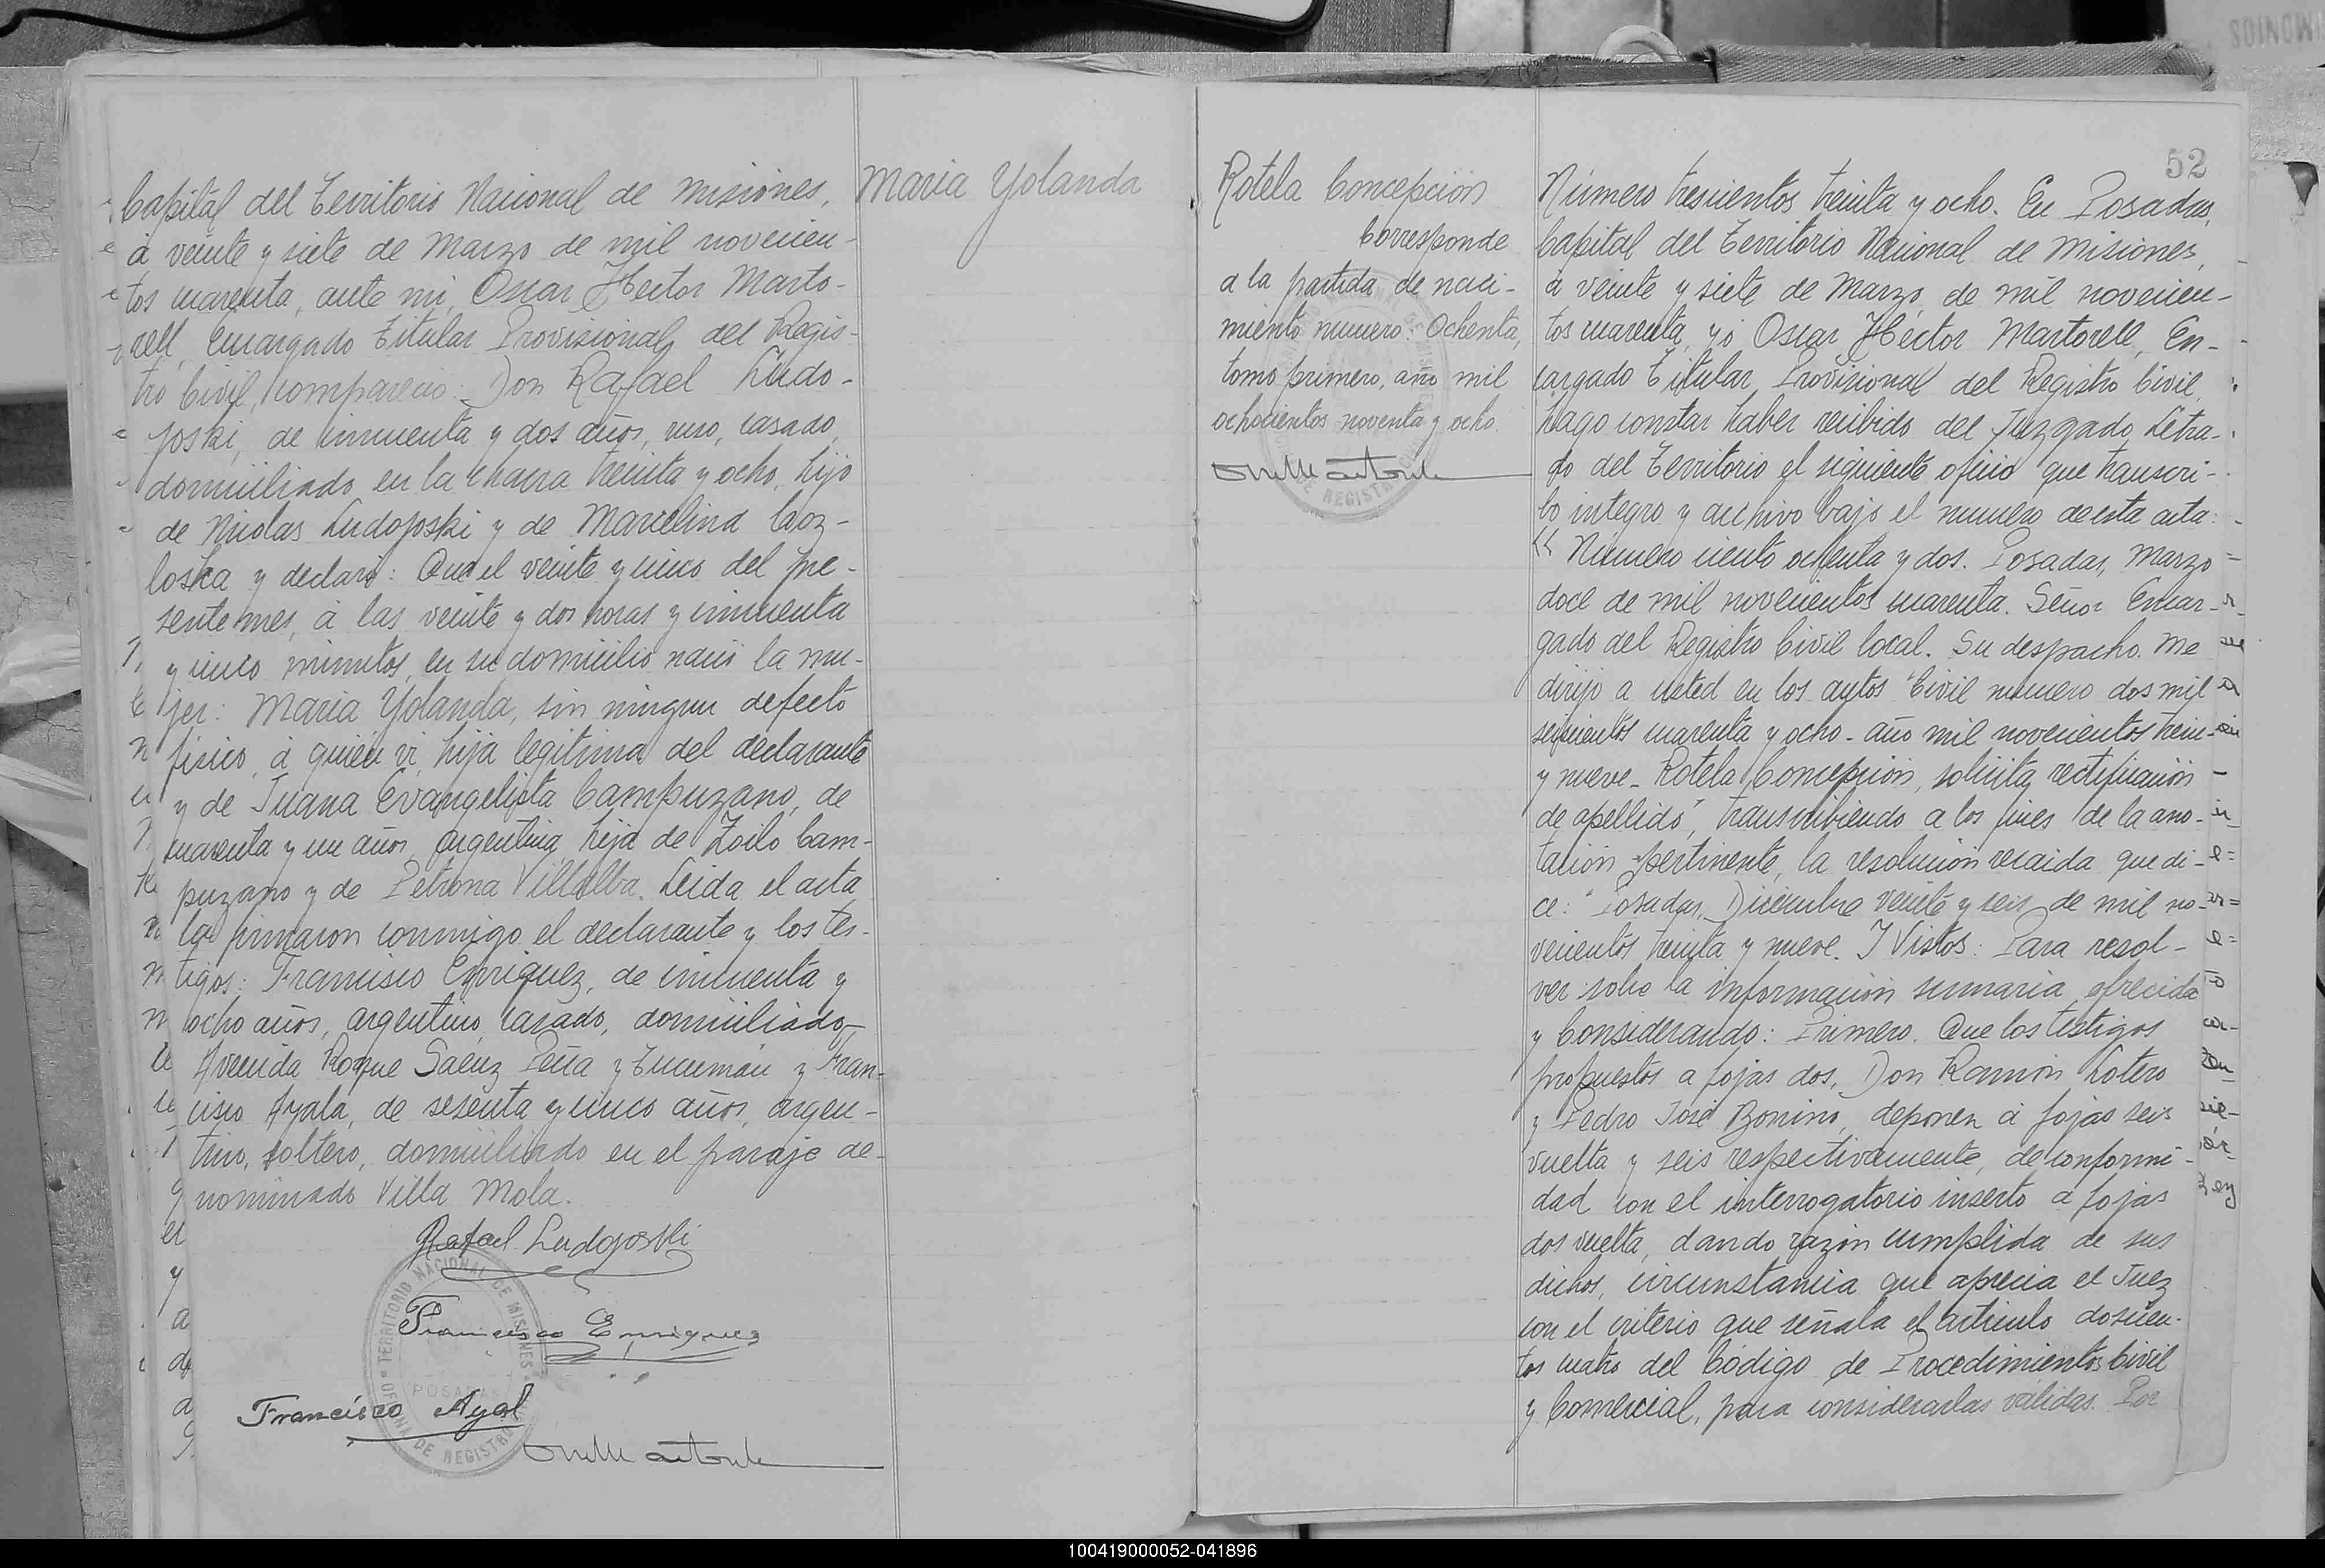 Capital del Territorio Nacional de Misiones,
á veinte y siete de Marzo de mil novecien-
tos cuarenta, ante mí, Oscar Hector Marto-
rell, Encargado Titular Provisional, del Regis-
tro Civil, compareció: Don Rafael Ludo-
joski, de cincuenta y dos años, ruso, casado,
domiciliado en la chacra treinta y ocho, hijo
de Nicolas Ludojoski y de Marcelina Coz-
loska y declaró: Que el veinte y cinco del pre-
sente mes, á las veinte y dos horas y cincuenta
y cinco minutos, en su domicilio nació la mu-
jer: Maria Yolanda, sin ningun defecto
físico, á quién vi, hija legitima del declarante
y de Juana Evangelista Campuzano, de
cuarenta y un años, argentina, hija de Zoilo Cam-
puzano y de Petrona Villalba. Leida el acta
la firmaron conmigo el declarante y los tes-
tigos: Francisco Enriquez, de cincuenta y
ocho años, argentino, casado, domiciliado
Avenida Roque Saenz Peña y Tucumán y Fran-
cisco Ayala, de sesenta y cinco años, argen-
tino, soltero, domiciliado en el paraje de-
nominado Villa Mola.
Rafael Ludojoski
Francisco Enriquez
Francisco Ayal
TERRITORIO NACIONAL DE MISIONES
POSADAS
OFICINA DE REGISTRO
Maria Yolanda
52
Rotela Concepción
Corresponde
a la partida de naci-
miento numero: Ochenta,
tomo primero, año mil
ochocientos noventa y ocho.
DE REGISTRO
Número trescientos treinta y ocho. En Posadas,
Capital del Territorio Nacional de Misiones,
á veinte y siete de Marzo de mil novecien-
tos cuarenta, yó Oscar Héctor Martorell, En-
cargado Titular Provisional del Registro Civil,
hago constar haber recibido del Juzgado Letra-
do del Territorio el siguiente oficio que transcri-
bo integro y archivo bajo el numero de esta acta:
"Número ciento ochenta y dos. Posadas, Marzo
doce de mil novecientos cuarenta. Señor Encar-
gado del Registro Civil local. Su despacho. Me
dirijo a usted en los autos "Civil número dos mil
seiscientos cuarenta y ocho - año mil novecientos trein-
y nueve - Rotela Concepción, solicita rectificación
de apellido", transcribiendo a los fines de la ano-
tación pertinente, la resolución recaida que di-
ce: "Posadas, Diciembre veinte y seis de mil no-
vecientos treinta y nueve. Y Vistos: Para resol-
ver sobre la información sumaria ofrecida
y Considerando: Primero. Que los testigos
propuestos a fojas dos, Don Ramón Lotero
y Pedro José Bonino, deponen á fojas seis
vuelta y seis respectivamente, de conformi-
dad con el interrogatorio inserto a fojas
dos vuelta, dando razón cumplida de sus
dichos, circunstancia que aprecia el Juez
con el criterio que señala el articulo doscien-
tos cuatro del Código de Procedimientos Civil
y Comercial, para considerarlas válidas. Por
100419000052-041896